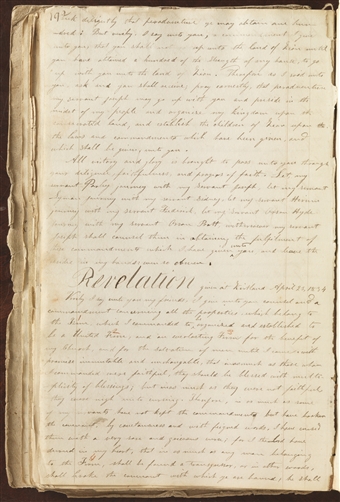 seek diligently that peradventure ye may obtain one hundred
verily I say unto you,
unto you, that you shall not go up unto the land of Zion until
you have obtained a hundred of the strength of my house, to go
up with you unto the land of Zion. Therefore as I said unto
you, ask and you shall receive, pray earnestly, that peradventure
my servant Joseph may go up with you and preside in the
midst of my people and organize my kingdom upon the
consecrated land, and establish the children of Zion upon the
the laws and commandments which have been given, and
which shall be given, unto you.
All victory and glory is brought to pass unto you through
your diligence, faithfulness, and prayers of faith. Let my
servant Parley journey with my servant Joseph, let my servant
Lyman journey with my servant Sidney, let my servant Hyrum
journey with my servant Frederick, let my servant Orson Hyde
journey with my servant Orson Pratt
Joseph shall counsel them in obtaining the fulfilment of
the commandments which I have given unto you, and leave the
in my hands, even so amen.
Revelation given at Kirtland April 23, 1834
Verily I say unto you my friends, I give unto you counsel and a
commandment concerning all the properties which belong to
the Firm, which I commanded to be organized and established to
be a United Firm, and an everlasting Firm for the benefit of
my church, and for the salvation of men until I come, with
promise immutable and unchangable, that inasmuch as those whom
I commanded were faithful, they should be blessed with multi-
plicity of blessings; but inasmuch as they were not faithful,
they were nigh unto cursing. Therefore, inasmuch as some
of my servants have not kept the commandments, but have broken
the covenant, by covetousness and with feigned words, I have cursed
them with a very sore and grievous curse; for I the Lord have
decreed in my heart, that inasmuch as any man belonging
to the Firm, shall be found a transgressor, or in other words,
shall broke the covenant with which ye are bound, he shall